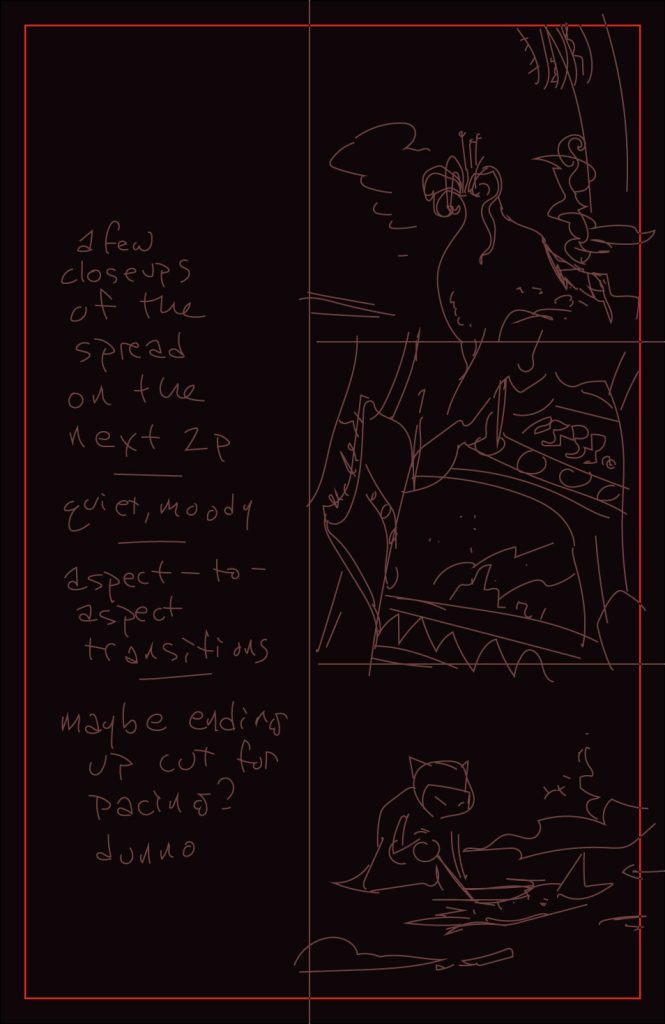 a few
closeups
of the
spread
on the
next 2p
quiet, moody
aspect-to-
aspect
transitions
maybe ending
up cut for
pacing?
dunno